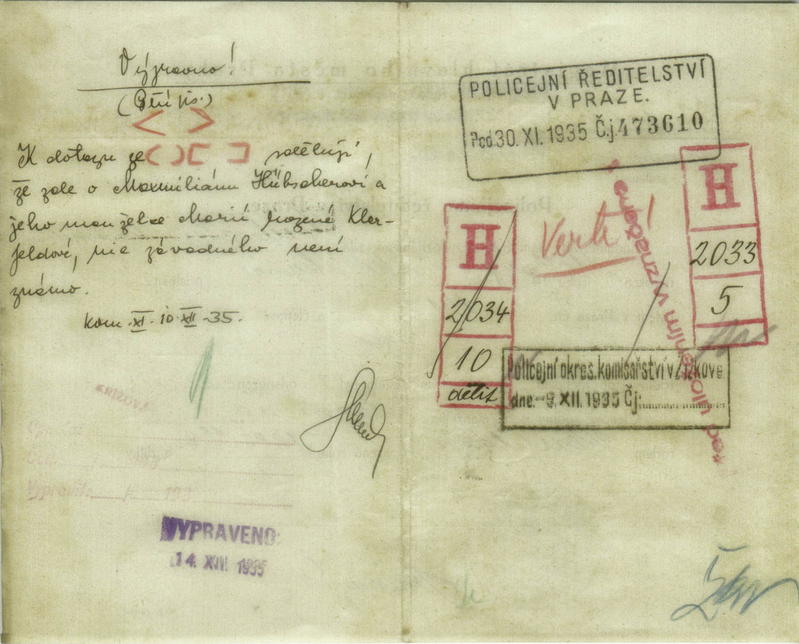 Výpravno!
K dotazu ze sdělují,
že zde o Maxmiliánu Hübscherovi a
jeho manželce Marii rozené Kler-
feldové, nic závadného není
známo.
kom. XI. 10. XII. 35.
VYPRAVENO:
14. XII. 1935
POLICEJNÍ ŘEDITELSTVÍ
V PRAZE.
Pod. 30. XI. 1935 Č.j. 473610
Verte!
H
2033
5
H
2034
10
dětit
Policejní okres. komisařství v Žižkově
dne -9. XII. 1935 Čj.